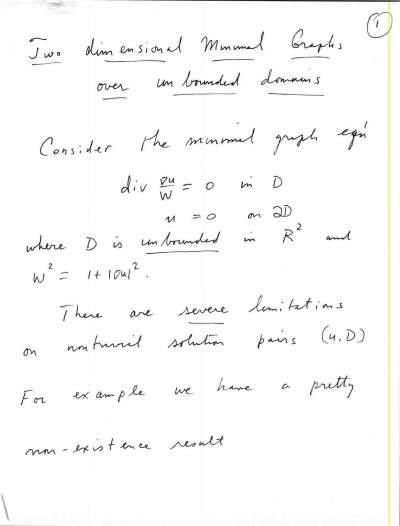 1
Two dimensional Minimal Graphs
over unbounded domains
Consider the minimal graph eqn
div Du/W = 0 in D
u = 0 on ∂D
where D is unbounded in R² and
W² = 1+|Du|².
There are severe limitations
on nontrivial solution pairs (u,D)
For example we have a pretty
non-existence result